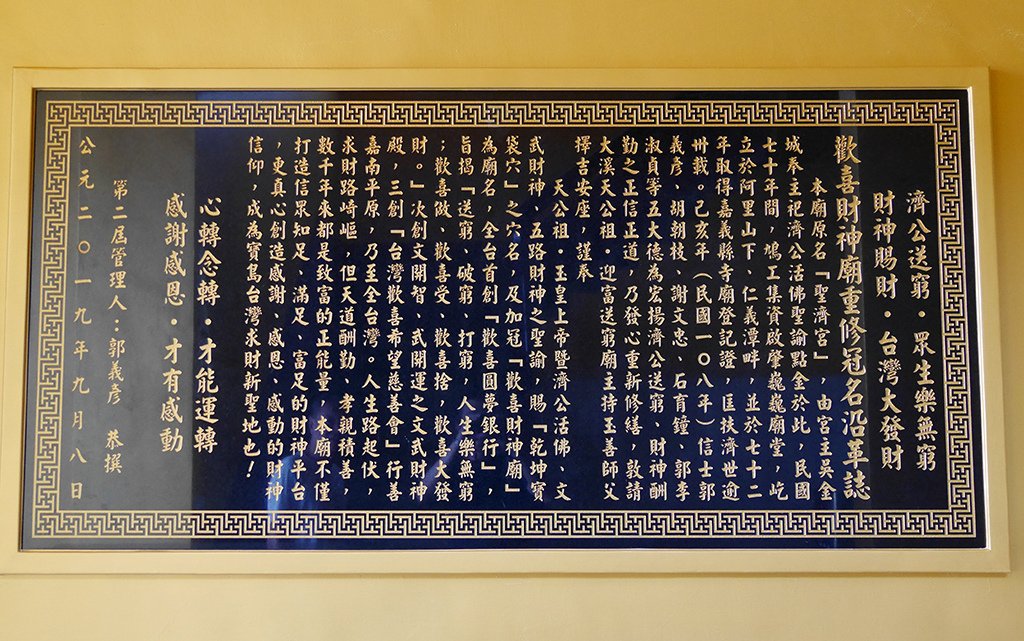 濟公送窮．眾生樂無窮
財神賜財．台灣大發財
歡喜財神廟重修冠名沿革誌
本廟原名「聖濟宮」，由宮主吳金
城奉主祀濟公活佛聖諭點金於此，民國
七十年間，鳩工集資啟肇巍巍廟堂，屹
立於阿里山下、仁義潭畔，並於七十二
年取得嘉義縣寺廟登記證，匡扶濟世逾
卅載。己亥年（民國一０八年）信士郭
義彥、胡朝枝、謝文忠、石育鐘、郭李
淑貞等五大德為宏揚濟公送窮、財神酬
勤之正信正道，乃發心重新修繕，敦請
大溪天公祖．迎富送窮廟主持玉善師父
擇吉安座，謹奉
天公祖．玉皇上帝暨濟公活佛、文
武財神、五路財神之聖諭，賜「乾坤寶
袋穴」之穴名，及加冠「歡喜財神廟」
為廟名，全台首創「歡喜圓夢銀行」，
旨揭「送窮、破窮、打窮，人生樂無窮
；歡喜做、歡喜受、歡喜捨，歡喜大發
財。」次創文開智、武開運之文武財神
殿，三創「台灣歡喜希望慈善會」行善
嘉南平原，乃至全台灣。人生路起伏，
求財路崎嶇，但天道酬勤、孝親積善，
數千年來都是致富的正能量，本廟不僅
打造信眾知足、滿足、富足的財神平台
，更真心創造感謝、感恩、感動的財神
信仰，成為寶島台灣求財新聖地也！
心轉念轉．才能運轉
感謝感恩．才有感動
第二屆管理人：郭義彥 恭撰
公元二０一九年九月八日